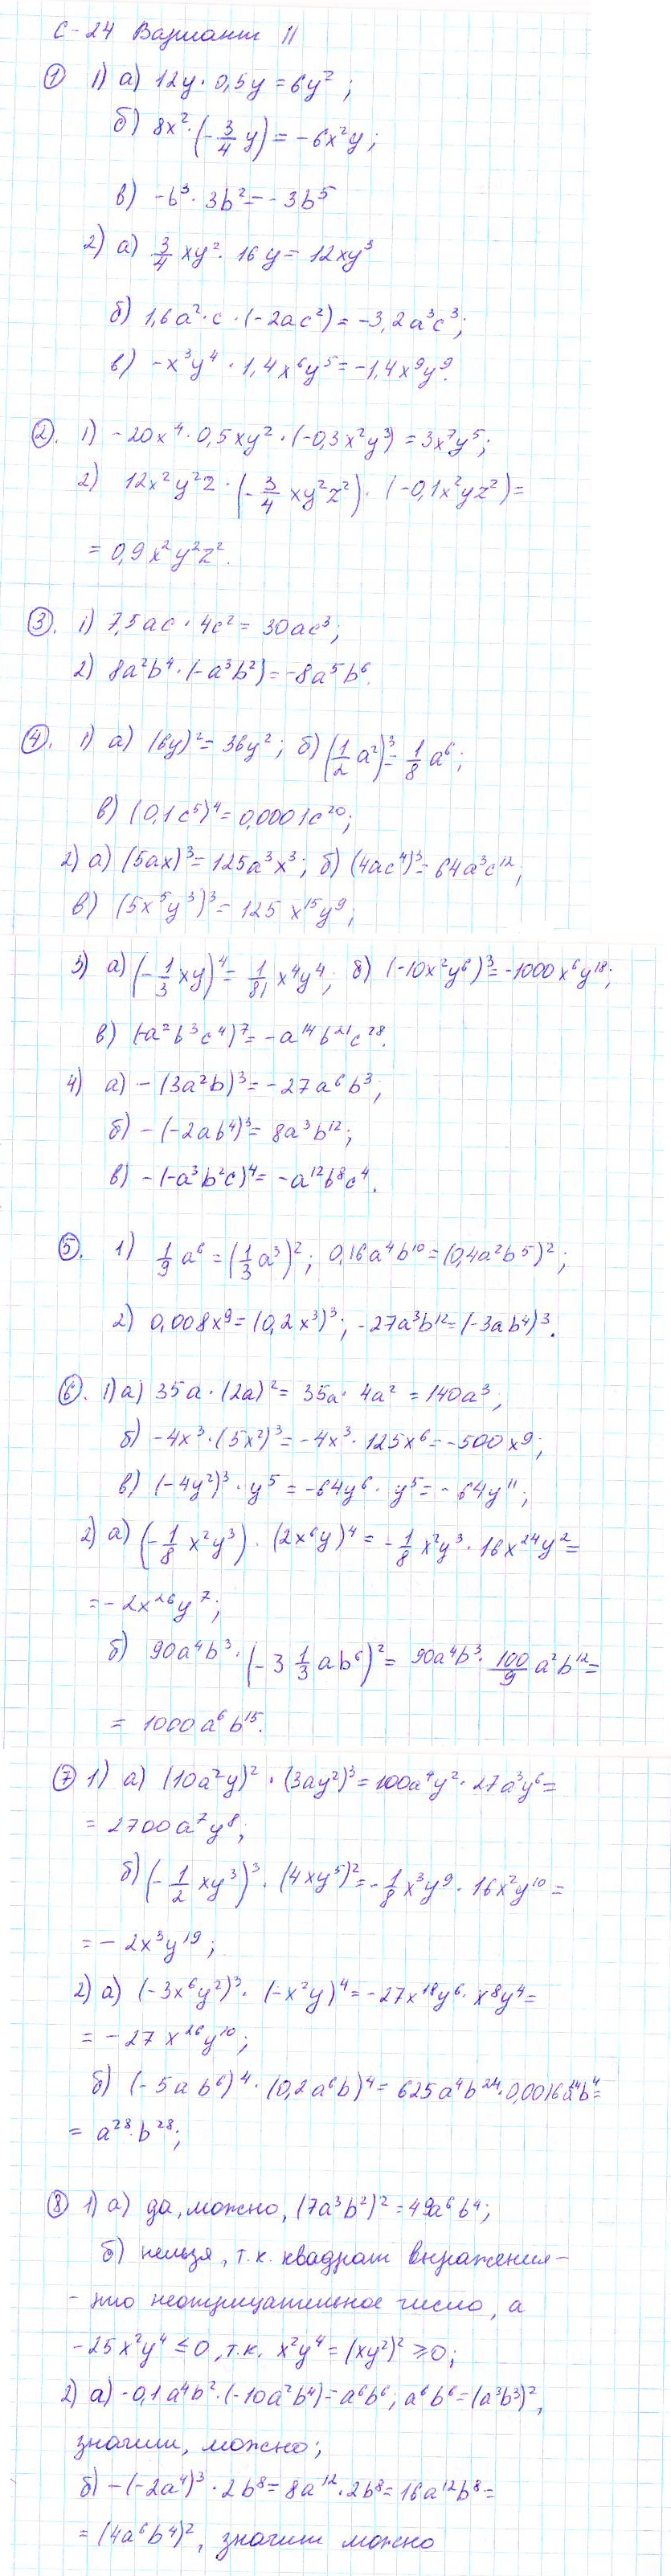 С-24 Вариант II
① 1) а) 12y · 0,5y = 6y²;
б) 8x² · (-3/4 y) = -6x²y;
в) -b³ · 3b² = -3b⁵
2) а) 3/4 xy² · 16y = 12xy³
б) 1,6a² · c · (-2ac²) = -3,2a³c³;
в) -x³y⁴ · 1,4x⁶y⁵ = -1,4x⁹y⁹.
②. 1) -20x⁴ · 0,5xy² · (-0,3x²y³) = 3x⁷y⁵;
2) 12x²y²z · (-3/4 xy²z²) · (-0,1x²yz²) =
= 0,9x²y²z².
③. 1) 7,5ac · 4c² = 30ac³;
2) 8a²b⁴ · (-a³b²) = -8a⁵b⁶.
④. 1) а) (6y)² = 36y²; б) (1/2 a²)³ = 1/8 a⁶;
в) (0,1c⁵)⁴ = 0,0001c²⁰;
2) а) (5ax)³ = 125a³x³; б) (4ac⁴)³ = 64a³c¹²;
в) (5x⁵y³)³ = 125x¹⁵y⁹;
3) а) (-1/3 xy)⁴ = 1/81 x⁴y⁴; б) (-10x²y⁶)³ = -1000x⁶y¹⁸;
в) (-a²b³c⁴)⁷ = -a¹⁴b²¹c²⁸.
4) а) -(3a²b)³ = -27a⁶b³;
б) -(-2ab⁴)³ = 8a³b¹²;
в) -(-a³b²c)⁴ = -a¹²b⁸c⁴.
⑤. 1) 1/9 a⁶ = (1/3 a³)²; 0,16a⁴b¹⁰ = (0,4a²b⁵)²;
2) 0,008x⁹ = (0,2x³)³; -27a³b¹² = (-3ab⁴)³.
⑥. 1) а) 35a · (2a)² = 35a · 4a² = 140a³;
б) -4x³ · (5x²)³ = -4x³ · 125x⁶ = -500x⁹;
в) (-4y²)³ · y⁵ = -64y⁶ · y⁵ = -64y¹¹;
2) а) (-1/8 x²y³) · (2x⁶y)⁴ = -1/8 x²y³ · 16x²⁴y² =
= -2x²⁶y⁷;
б) 90a⁴b³ · (-3 1/3 ab⁶)² = 90a⁴b³ · 100/9 a²b¹² =
= 1000a⁶b¹⁵.
⑦ 1) а) (10a²y)² · (3ay²)³ = 100a⁴y² · 27a³y⁶ =
= 2700a⁷y⁸;
б) (-1/2 xy³)³ · (4xy⁵)² = -1/8 x³y⁹ · 16x²y¹⁰ =
= -2x⁵y¹⁹;
2) а) (-3x⁶y²)³ · (-x²y)⁴ = -27x¹⁸y⁶ · x⁸y⁴ =
= -27x²⁶y¹⁰;
б) (-5ab⁶)⁴ · (0,2a⁶b)⁴ = 625a⁴b²⁴ · 0,0016a²⁴b⁴ =
= a²⁸ · b²⁸;
⑧ 1) а) да, можно, (7a³b²)² = 49a⁶b⁴;
б) нельзя, т.к. квадрат выражения -
- это неотрицательное число, а
-25x²y⁴ ≤ 0, т.к. x²y⁴ = (xy²)² ≥ 0;
2) а) -0,1a⁴b² · (-10a²b⁴) = a⁶b⁶; a⁶b⁶ = (a³b³)²,
значит, можно;
б) -(-2a⁴)³ · 2b⁸ = 8a¹² · 2b⁸ = 16a¹²b⁸ =
= (4a⁶b⁴)², значит можно